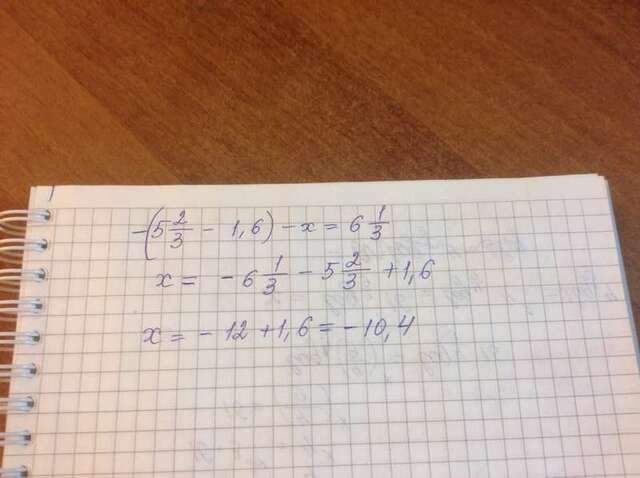 -(5 2/3 - 1,6) - x = 6 1/3
x = -6 1/3 - 5 2/3 + 1,6
x = -12 + 1,6 = -10,4